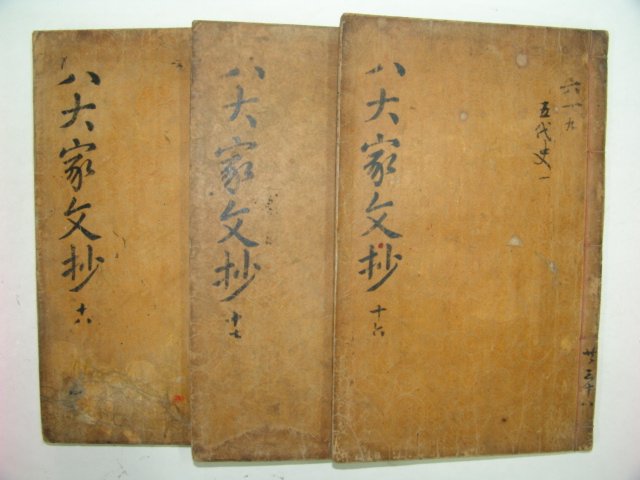 八大家文抄
十六
六一九
五代史一
八大家文抄
十七
八大家文抄
十八